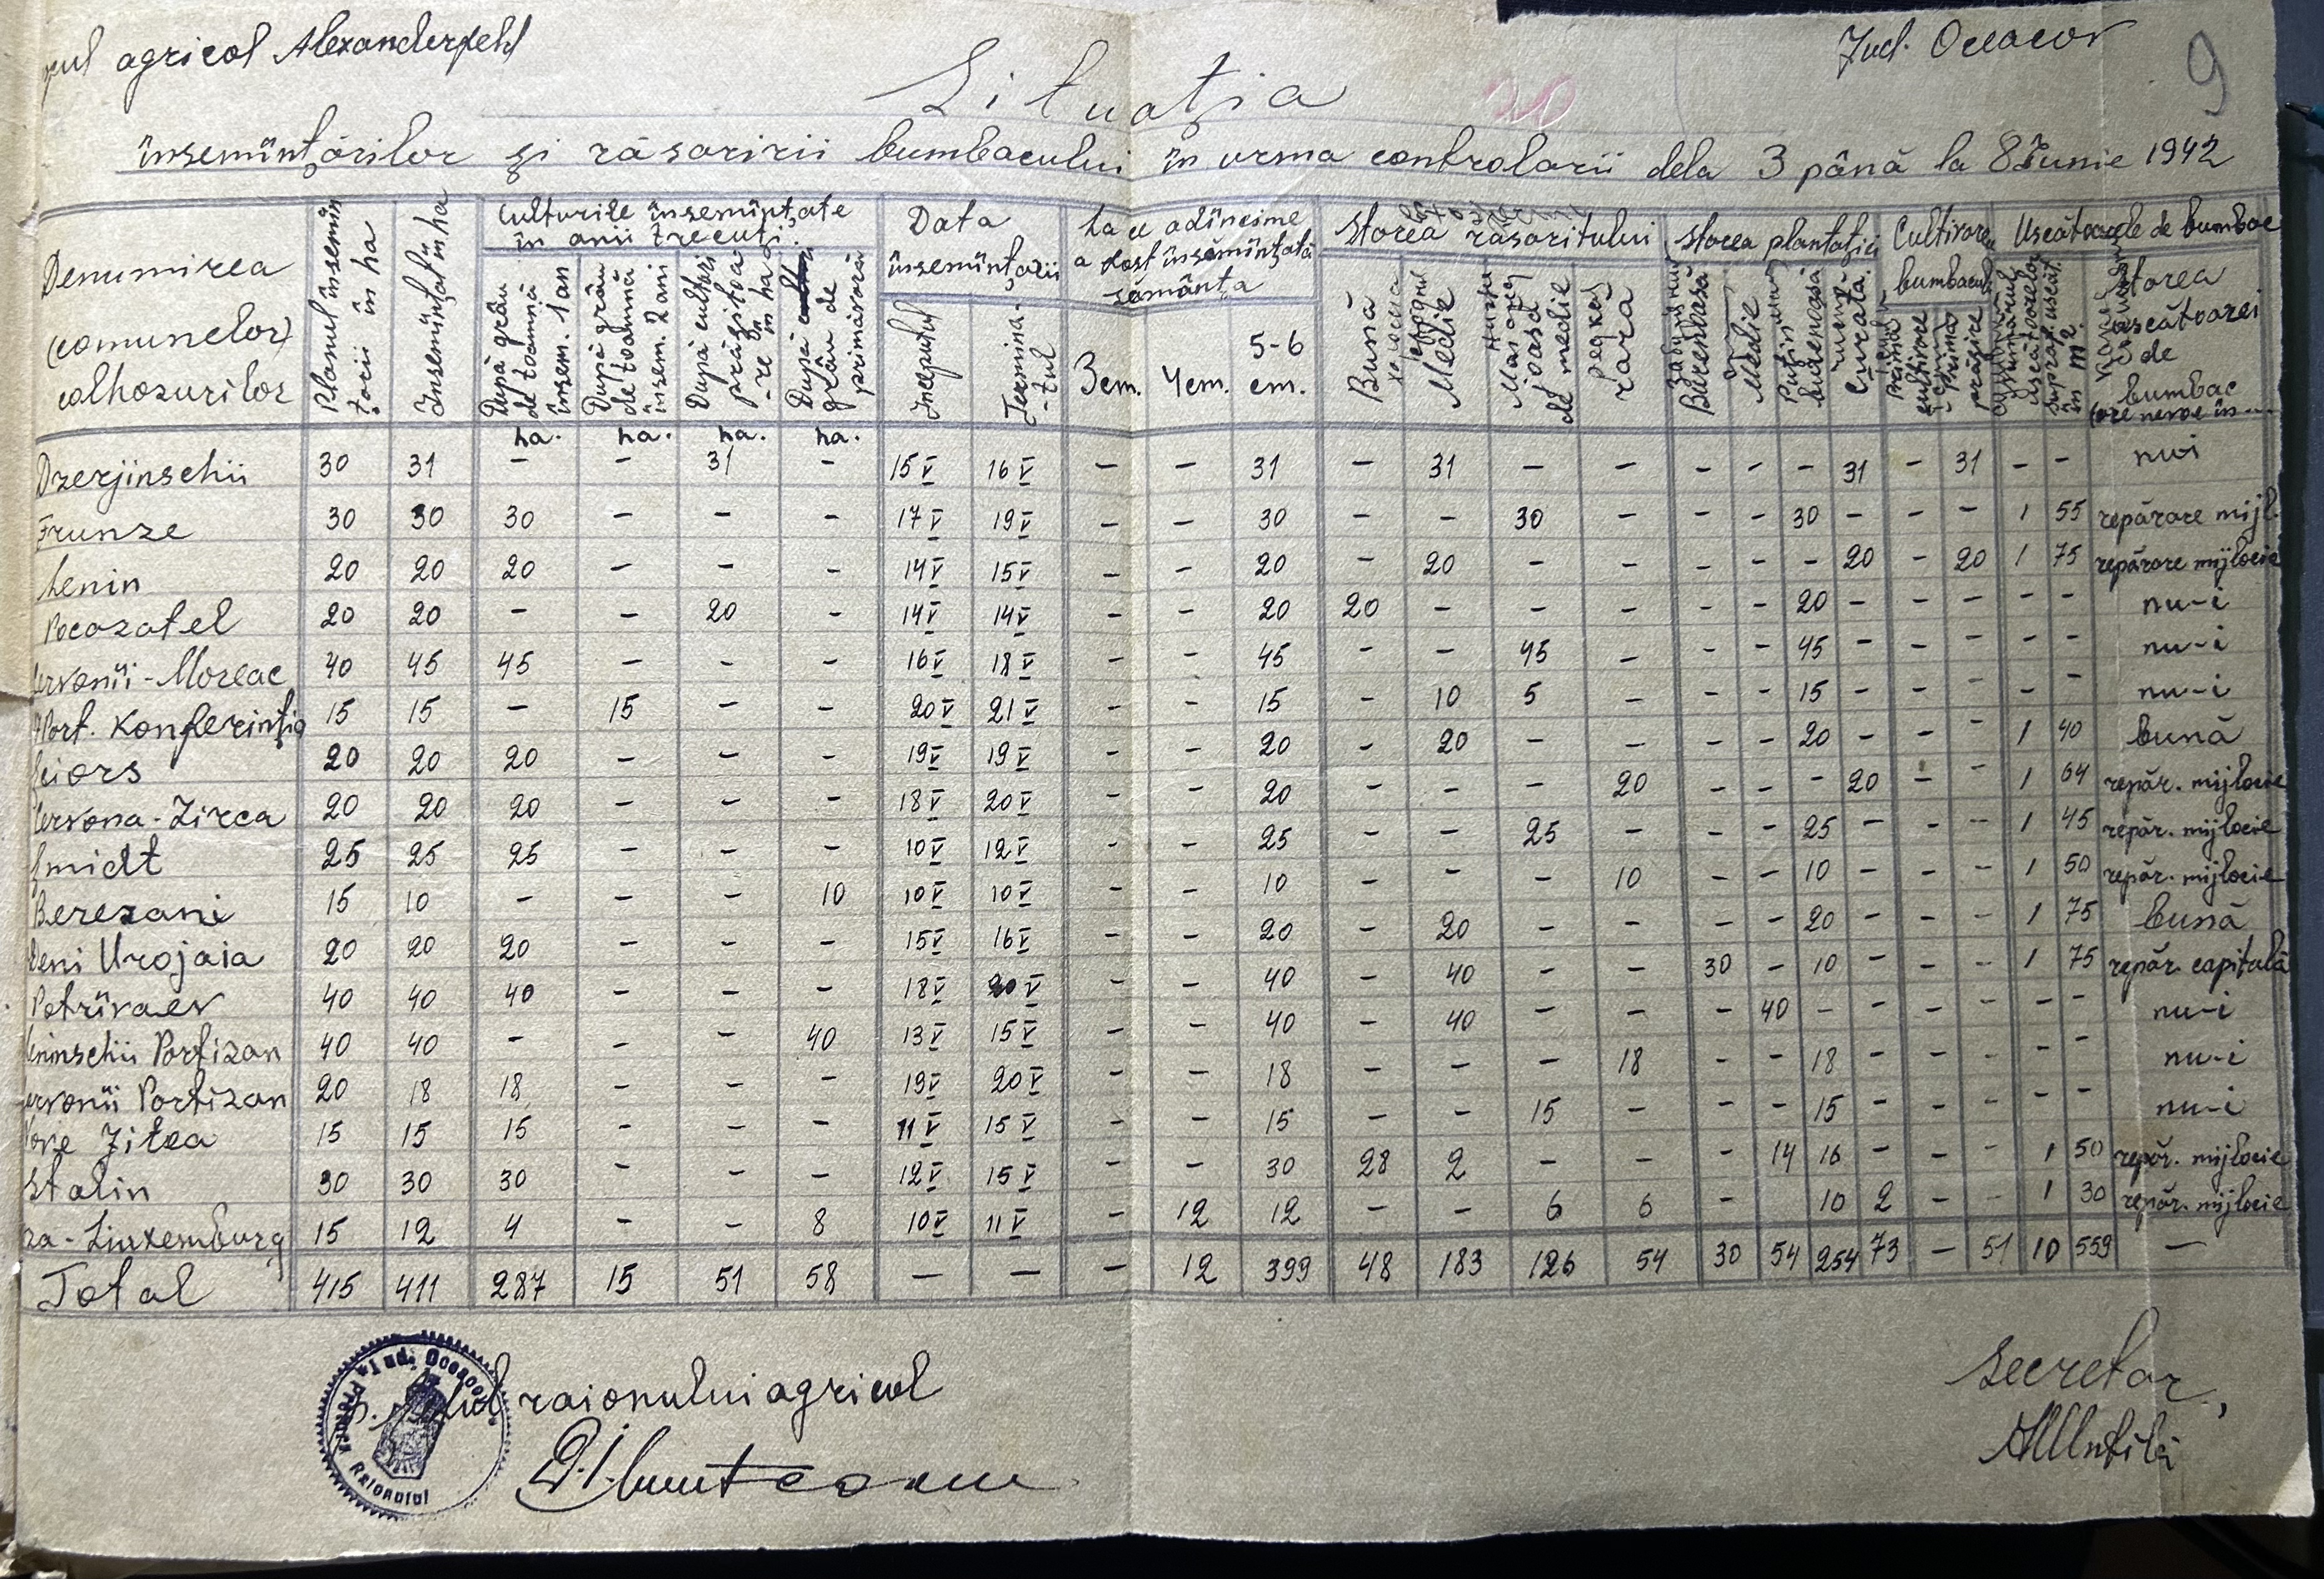 agricol Alexanderfehl
Jud. Oceacov
9
Situatia
20
însemînţărilor şi răsăririi bumbacului în urma controlării dela 3 până la 8 Iunie 1942
Denumirea (comunelor) colhozurilor
Planul însemînţării în ha
Însemînţat în ha
Culturile însemînţate în anii trecuţi.
După grâu de toamnă însem. 1 an ha.
După grâu de toamnă însem. 2 ani ha.
După culturi prăşitoare în ha ha.
După grâu de primăvară ha.
Data însemînţării
Începutul
Terminatul
La ce adîncime a fost însămînţată sămânţa
3 cm.
4 cm.
5-6 cm.
Starea răsăritului
Bună
Medie
Mai joasă de medie
rară
Starea plantaţiei
Burenoasă
Medie
Puţin burenoasă
Curată
Cultivarea bumbacului
Prima cultivare
Prima prăşire
Uscătoarele de bumbac
supraf. uscăt. în m².
Starea uscătoarei de bumbac
Dzerjinschii 30 31 - - 31 - 15 V 16 V - - 31 - 31 - - - - - 31 - 31 - - nu-i
Frunze 30 30 30 - - - 17 V 19 V - - 30 - - 30 - - - 30 - - - 1 55 repărare mijl.
Lenin 20 20 20 - - - 14 V 15 V - - 20 - 20 - - - - - 20 - 20 1 75 repărare mijlocie
Pocazatel 20 20 - - 20 - 14 V 14 V - - 20 20 - - - - - 20 - - - - - nu-i
ervonîi-Moreac 40 45 45 - - - 16 V 18 V - - 45 - - 45 - - - 45 - - - - - nu-i
Part. Konferinţia 15 15 - 15 - - 20 V 21 V - - 15 - 10 5 - - - 15 - - - - - nu-i
ciors 20 20 20 - - - 19 V 19 V - - 20 - 20 - - - - 20 - - - 1 40 bună
ervona-Zirca 20 20 20 - - - 18 V 20 V - - 20 - - - 20 - - - 20 - - 1 64 repăr. mijlocie
midt 25 25 25 - - - 10 V 12 V - - 25 - - 25 - - - 25 - - - 1 45 repăr. mijlocie
Berezani 15 10 - - - 10 10 V 10 V - - 10 - - - 10 - - 10 - - - 1 50 repăr. mijlocie
eni Urojaia 20 20 20 - - - 15 V 16 V - - 20 - 20 - - - - 20 - - - 1 75 bună
Petrîvaev 40 40 40 - - - 18 V 20 V - - 40 - 40 - - 30 - 10 - - - 1 75 repăr. capitală
eninschii Partizan 40 40 - - - 40 13 V 15 V - - 40 - 40 - - - 40 - - - - - - nu-i
ervonîi Partizan 20 18 18 - - - 19 V 20 V - - 18 - - - 18 - - 18 - - - - - nu-i
ove Jitea 15 15 15 - - - 11 V 15 V - - 15 - - 15 - - - 15 - - - - - nu-i
Stalin 30 30 30 - - - 12 V 15 V - - 30 28 2 - - - 14 16 - - - 1 50 repăr. mijlocie
za-Liuxemburg 15 12 4 - - 8 10 V 11 V - 12 12 - - 6 6 - 10 2 - - 1 30 repăr. mijlocie
Total 415 411 287 15 51 58 — — - 12 399 48 183 126 54 30 54 254 73 — 51 10 559 —
raionului agricol
Secretar,